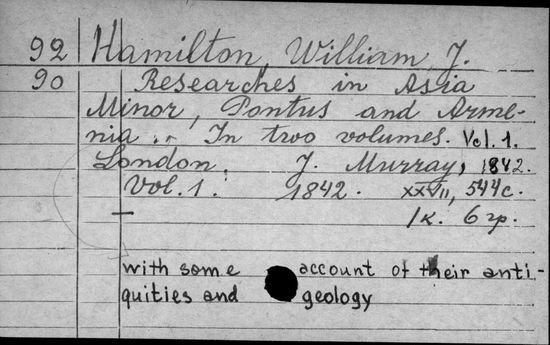 92 Hamilton, William J.
90 Researches in Asia
Minor, Pontus and Arme-
nia... In two volumes. Vol. 1.
London, J. Murray, 1842.
Vol. 1. 1842. XXVII, 544 с.
1 к. 6 гр.
with some account of their anti-
quities and geology